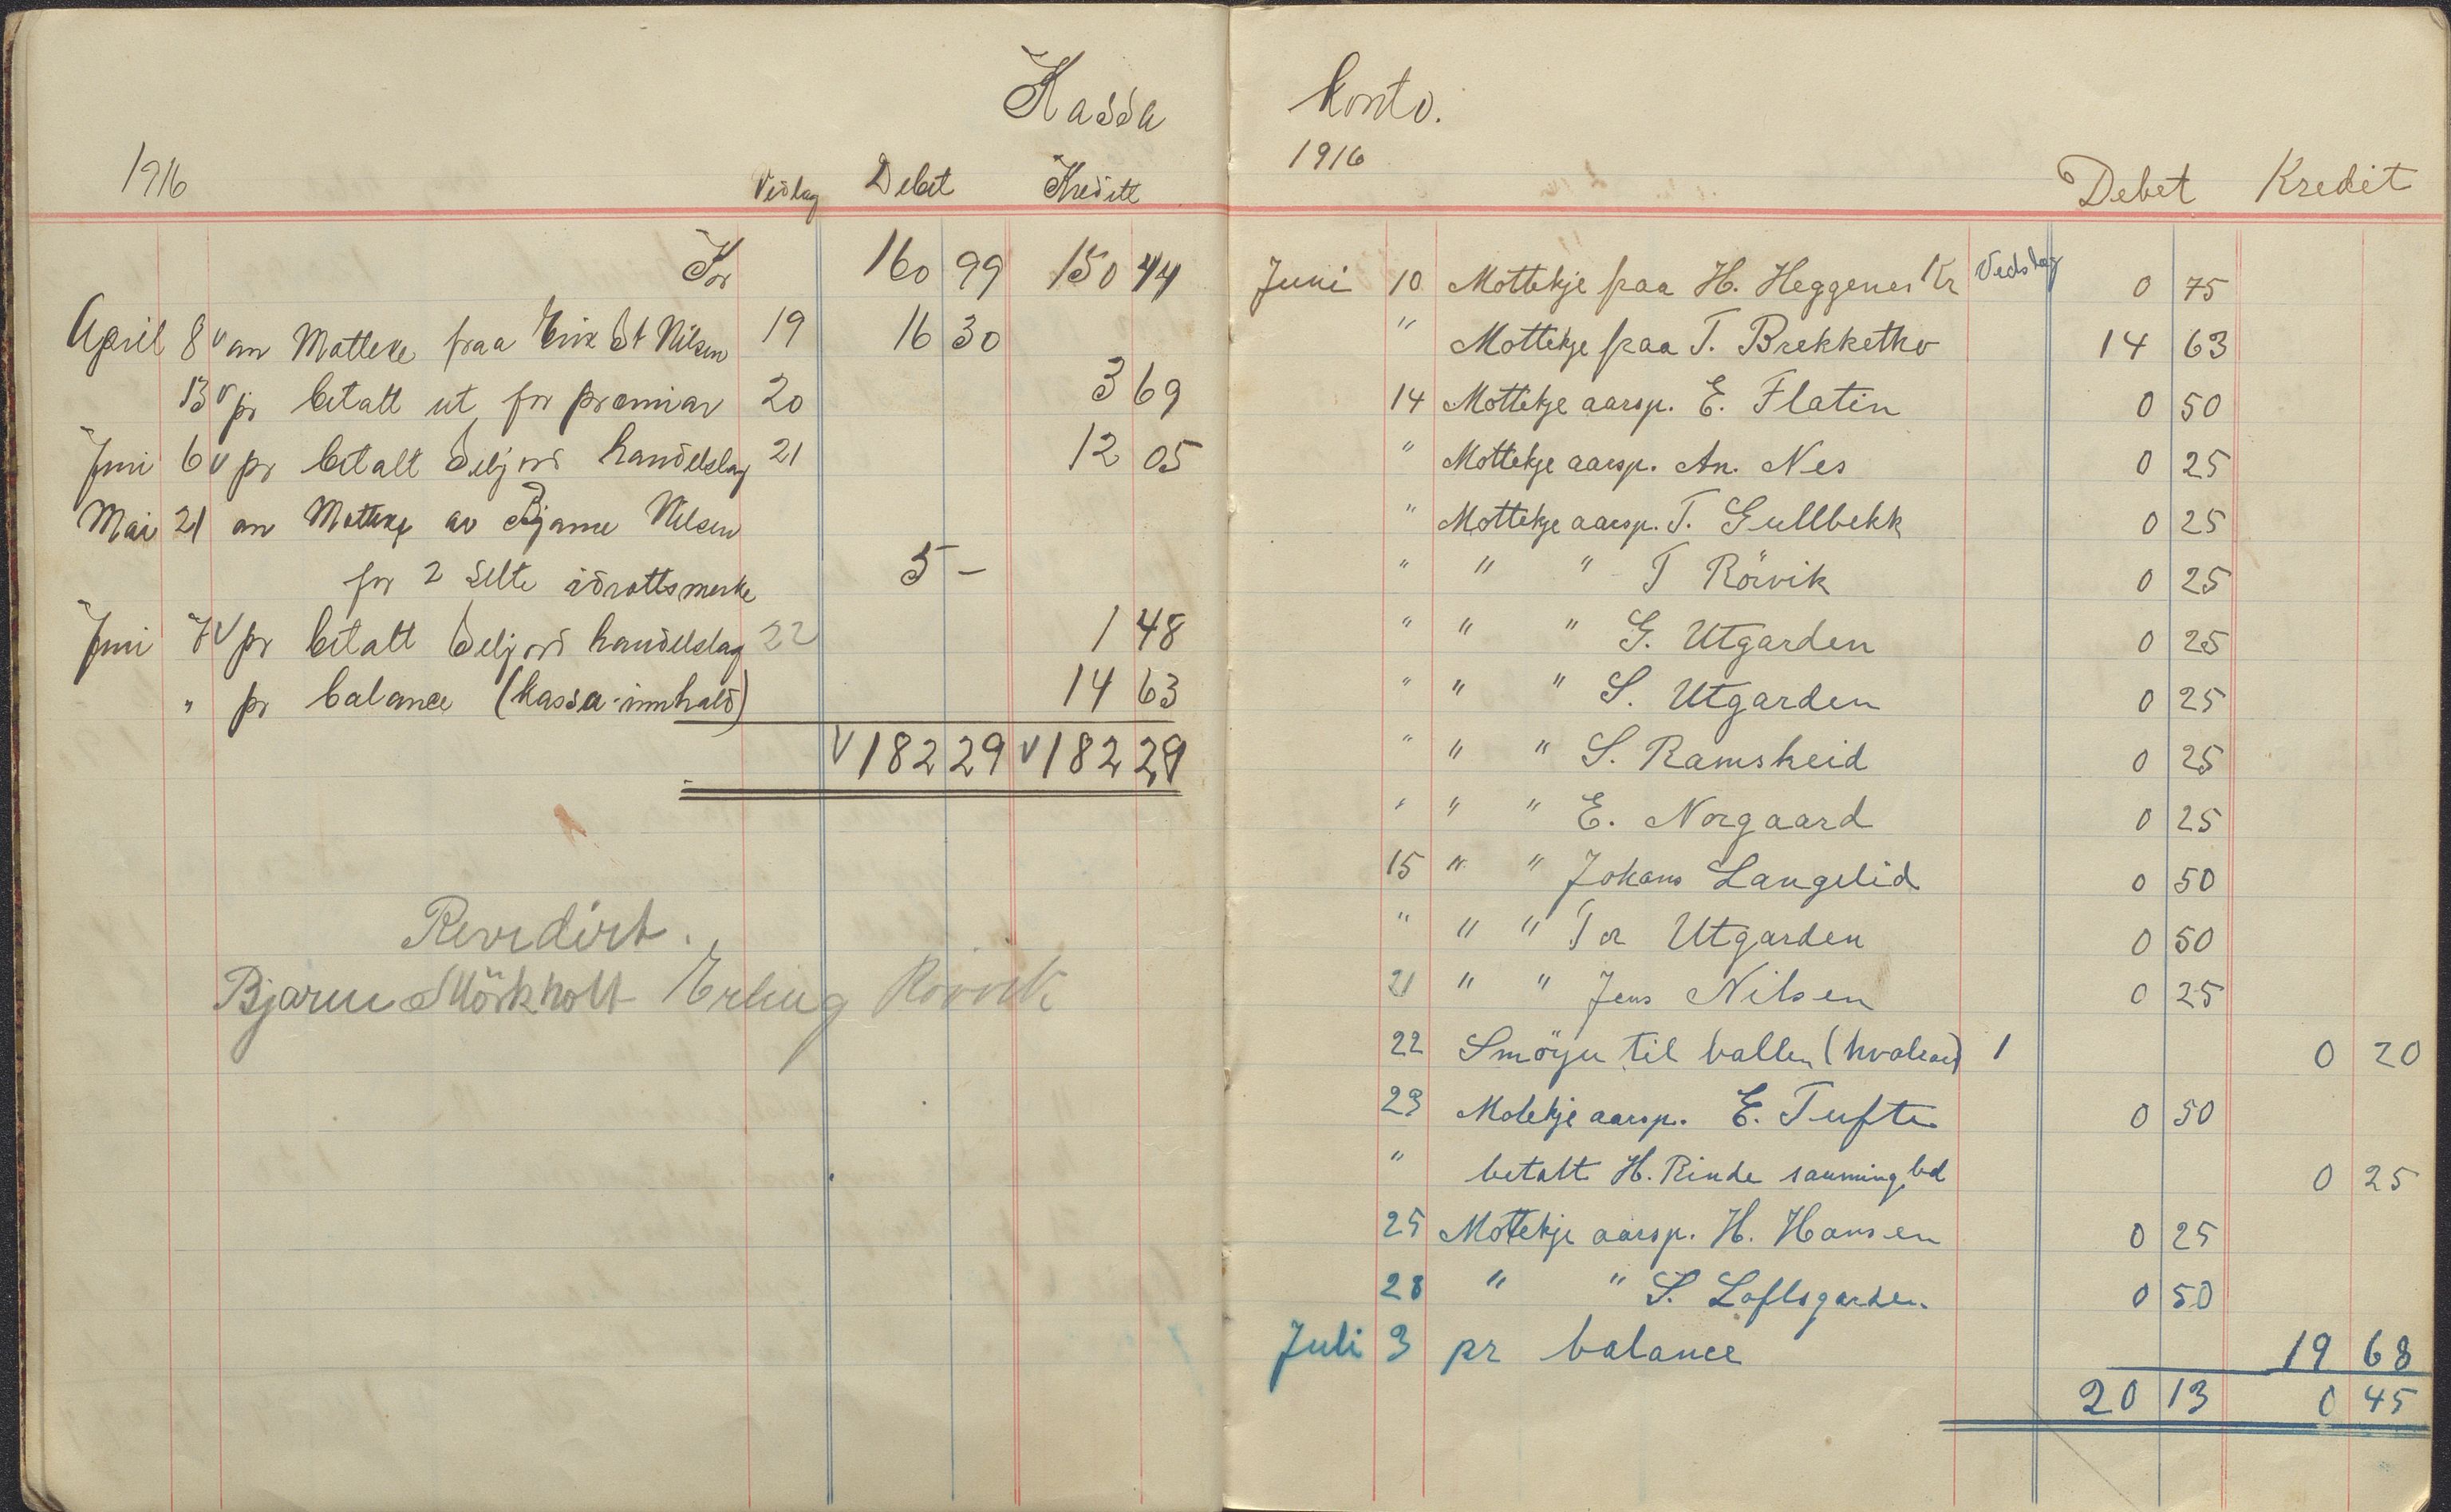 Kassa
1916 Vedlag Debet Kreditt
For 160 99 150 44
April 8 v an Motteke fraa Erik St Nilsen 19 16 30
13 v pr betalt ut for premiar 20 3 69
Juni 6 v pr betalt Seljord handelslag 21 12 05
Mai 21 an Motteke av Bjarne Nilsen
for 2 selte idrottsmerke 5 –
Juni 7 v pr betalt Seljord handelslag 22 1 48
" pr balance (kassa-innhald) 14 63
v 182 29 v 182 29
Revidirt.
Bjarne Mörkholt Erling Rörvik
konto.
1916
Debet Kredit
Juni 10 Mottekje fraa H. Heggenes Kr Vedslag 0 75
" Mottekje fraa T. Brekketho 14 63
14 Mottekje aarsp. E. Flatin 0 50
" Mottekje aarsp. An. Nes 0 25
" Mottekje aarsp. T. Gullbekk 0 25
" " " T Rörvik 0 25
" " " G. Utgarden 0 25
" " " S. Utgarden 0 25
" " " S. Ramskeid 0 25
" " " E. Norgaard 0 25
15 " " Johans Langelid 0 50
" " " Tor Utgarden 0 50
21 " " Jens Nilsen 0 25
22 Smöyu til ballen 1 0 20
23 Motekje aarsp. E. Tufte 0 50
" betalt H. Rinde sauming bal 0 25
25 Motekje aarsp. H. Hansen 0 25
28 " " S. Loftsgarden. 0 50
Juli 3 pr balance 19 68
20 13 0 45